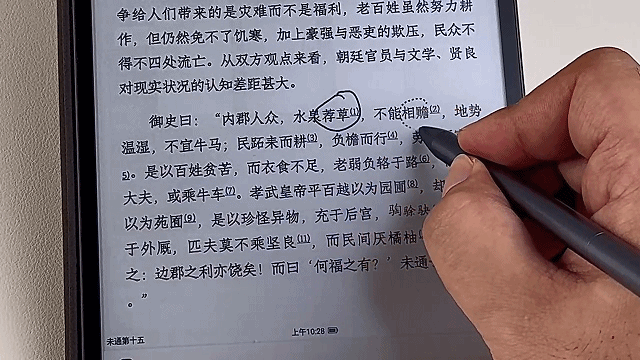 争给人们带来的是灾难而不是福利，老百姓虽然努力耕
作，但仍然免不了饥寒，加上豪强与恶吏的欺压，民众不
得不四处流亡。从双方观点来看，朝廷官员与文学、贤良
对现实状况的认知差距甚大。
御史曰：“内郡人众，水泉荐草(1)，不能相赡(2)，地势
温湿，不宜牛马；民跖耒而耕(3)，负檐而行(4)，劳
5)。是以百姓贫苦，而衣食不足，老弱负辂于路(6)，
大夫，或乘牛车(7)。孝武皇帝平百越以为园圃(8)，却
以为苑囿(9)，是以珍怪异物，充于后宫，
于外厩，匹夫莫不乘坚良(11)，而民间厌橘柚
之：边郡之利亦饶矣！而曰‘何福之有？’未通
。”
未通第十五
上午10:28